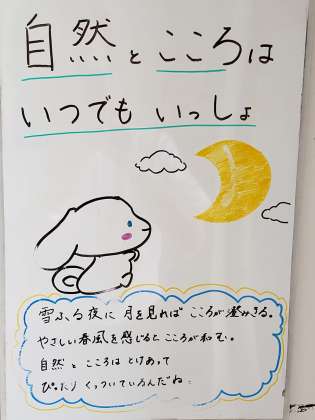 自然とこころは
いつでもいっしょ
雪ふる夜に月を見ればこころが澄みきる。
やさしい春風を感じるとこころが和む。
自然とこころはとけあって
ぴったりくっついているんだね。